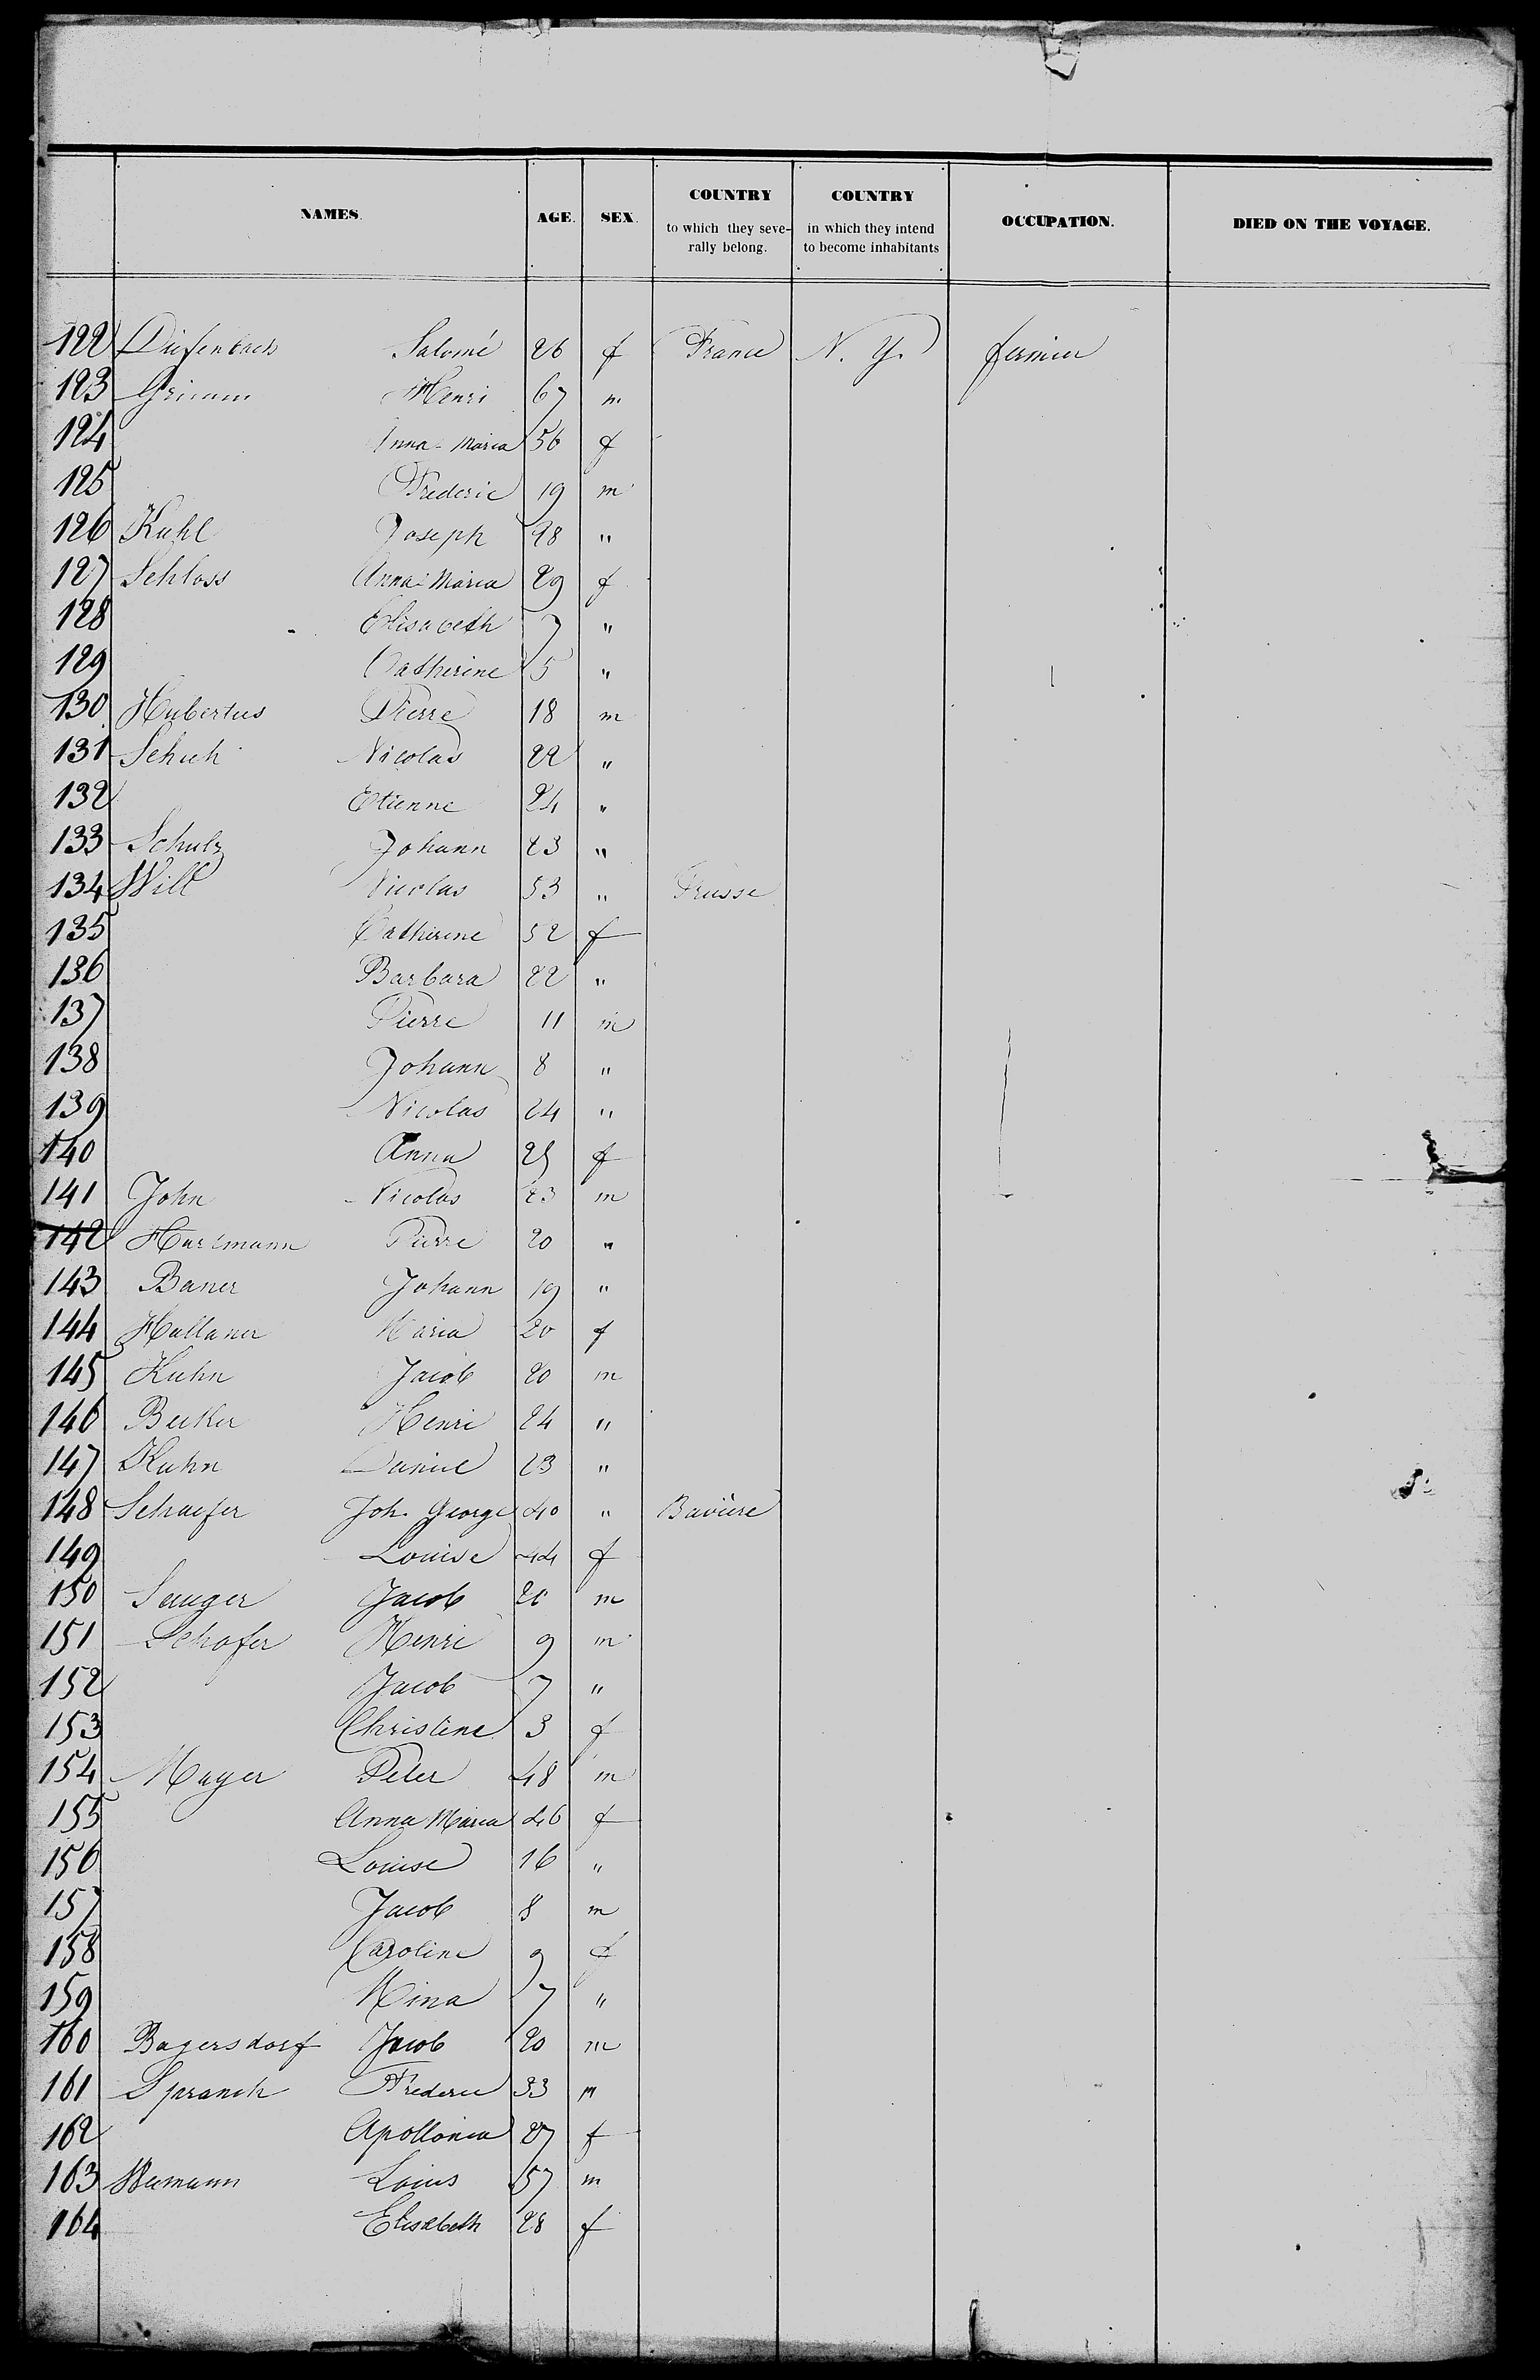 NAMES. AGE. SEX. COUNTRY to which they seve-rally belong. COUNTRY in which they intend to become inhabitants OCCUPATION. DIED ON THE VOYAGE.
122 Diefenbach Salomé 26 f France N. Y. fermier
123 Grimm Henri 67 m
124 Anna-Maria 56 f
125 Frederic 19 m
126 Kuhl Joseph 28 "
127 Schloss Anna-Maria 29 f
128 Elisabeth 7 "
129 Catherine 5 "
130 Hubertus Pierre 18 m
131 Schuh Nicolas 22 "
132 Etienne 24 "
133 Schulz Johann 23 "
134 Will Nicolas 53 " Prusse
135 Catherine 52 f
136 Barbara 22 "
137 Pierre 11 m
138 Johann 8 "
139 Nicolas 24 "
140 Anna 25 f
141 John Nicolas 23 m
142 Pierre 20 "
143 Bauer Johann 19 "
144 Maria 20 f
145 Kuhn Jacob 20 m
146 Becker Henri 24 "
147 Kuhn Daniel 23 "
148 Schaefer Joh. George 40 " Bavière
149 Louise 44 f
150 Jacob 20 m
151 Schafer Henri 9 m
152 Jacob 7 "
153 Christine 3 f
154 Mayer Peter 48 m
155 Anna Maria 46 f
156 Louise 16 "
157 Jacob 8 m
158 Caroline 9 f
159 Mina 7 "
160 Bayersdorf Jacob 20 m
161 Frederic 33 m
162 Apollonia 27 f
163 Louis 57 m
164 Elisabeth 28 f